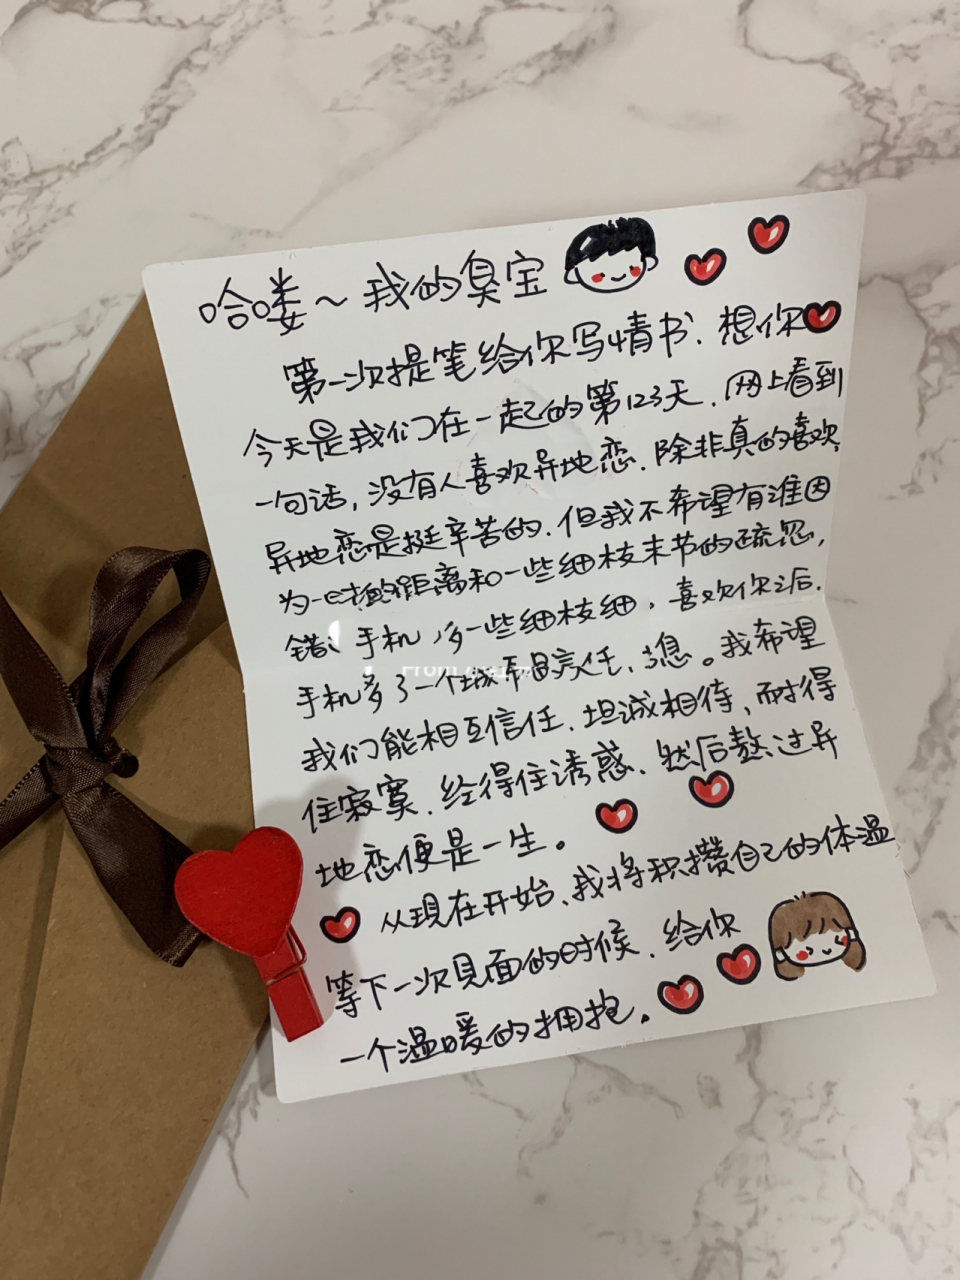 哈喽~我的臭宝
第一次提笔给你写情书、想你
今天是我们在一起的第123天．网上看到
一句话，没有人喜欢异地恋．除非真的喜欢，
异地恋是挺辛苦的．但我不希望有谁因
为一时的距离和一些细枝末节的疏忽，
错、手机，多一些细枝细，喜欢你之后．
手机多了一个城市
我们能相互信任．坦诚相待、耐得
住寂寞．经得住诱惑．然后熬过异
地恋便是一生。
从现在开始、我将积攒自己的体温
等下一次见面的时候．给你
一个温暖的拥抱．